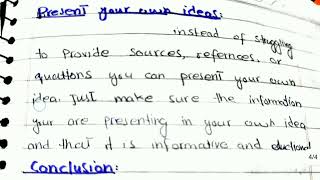 Present your own ideas:
instead of struggling
to provide sources, refernces, or
quations you can present your own
idea. Just make sure the information
your are presenting in your own idea
and that it is informative and eductional
Conclusion:
4/4